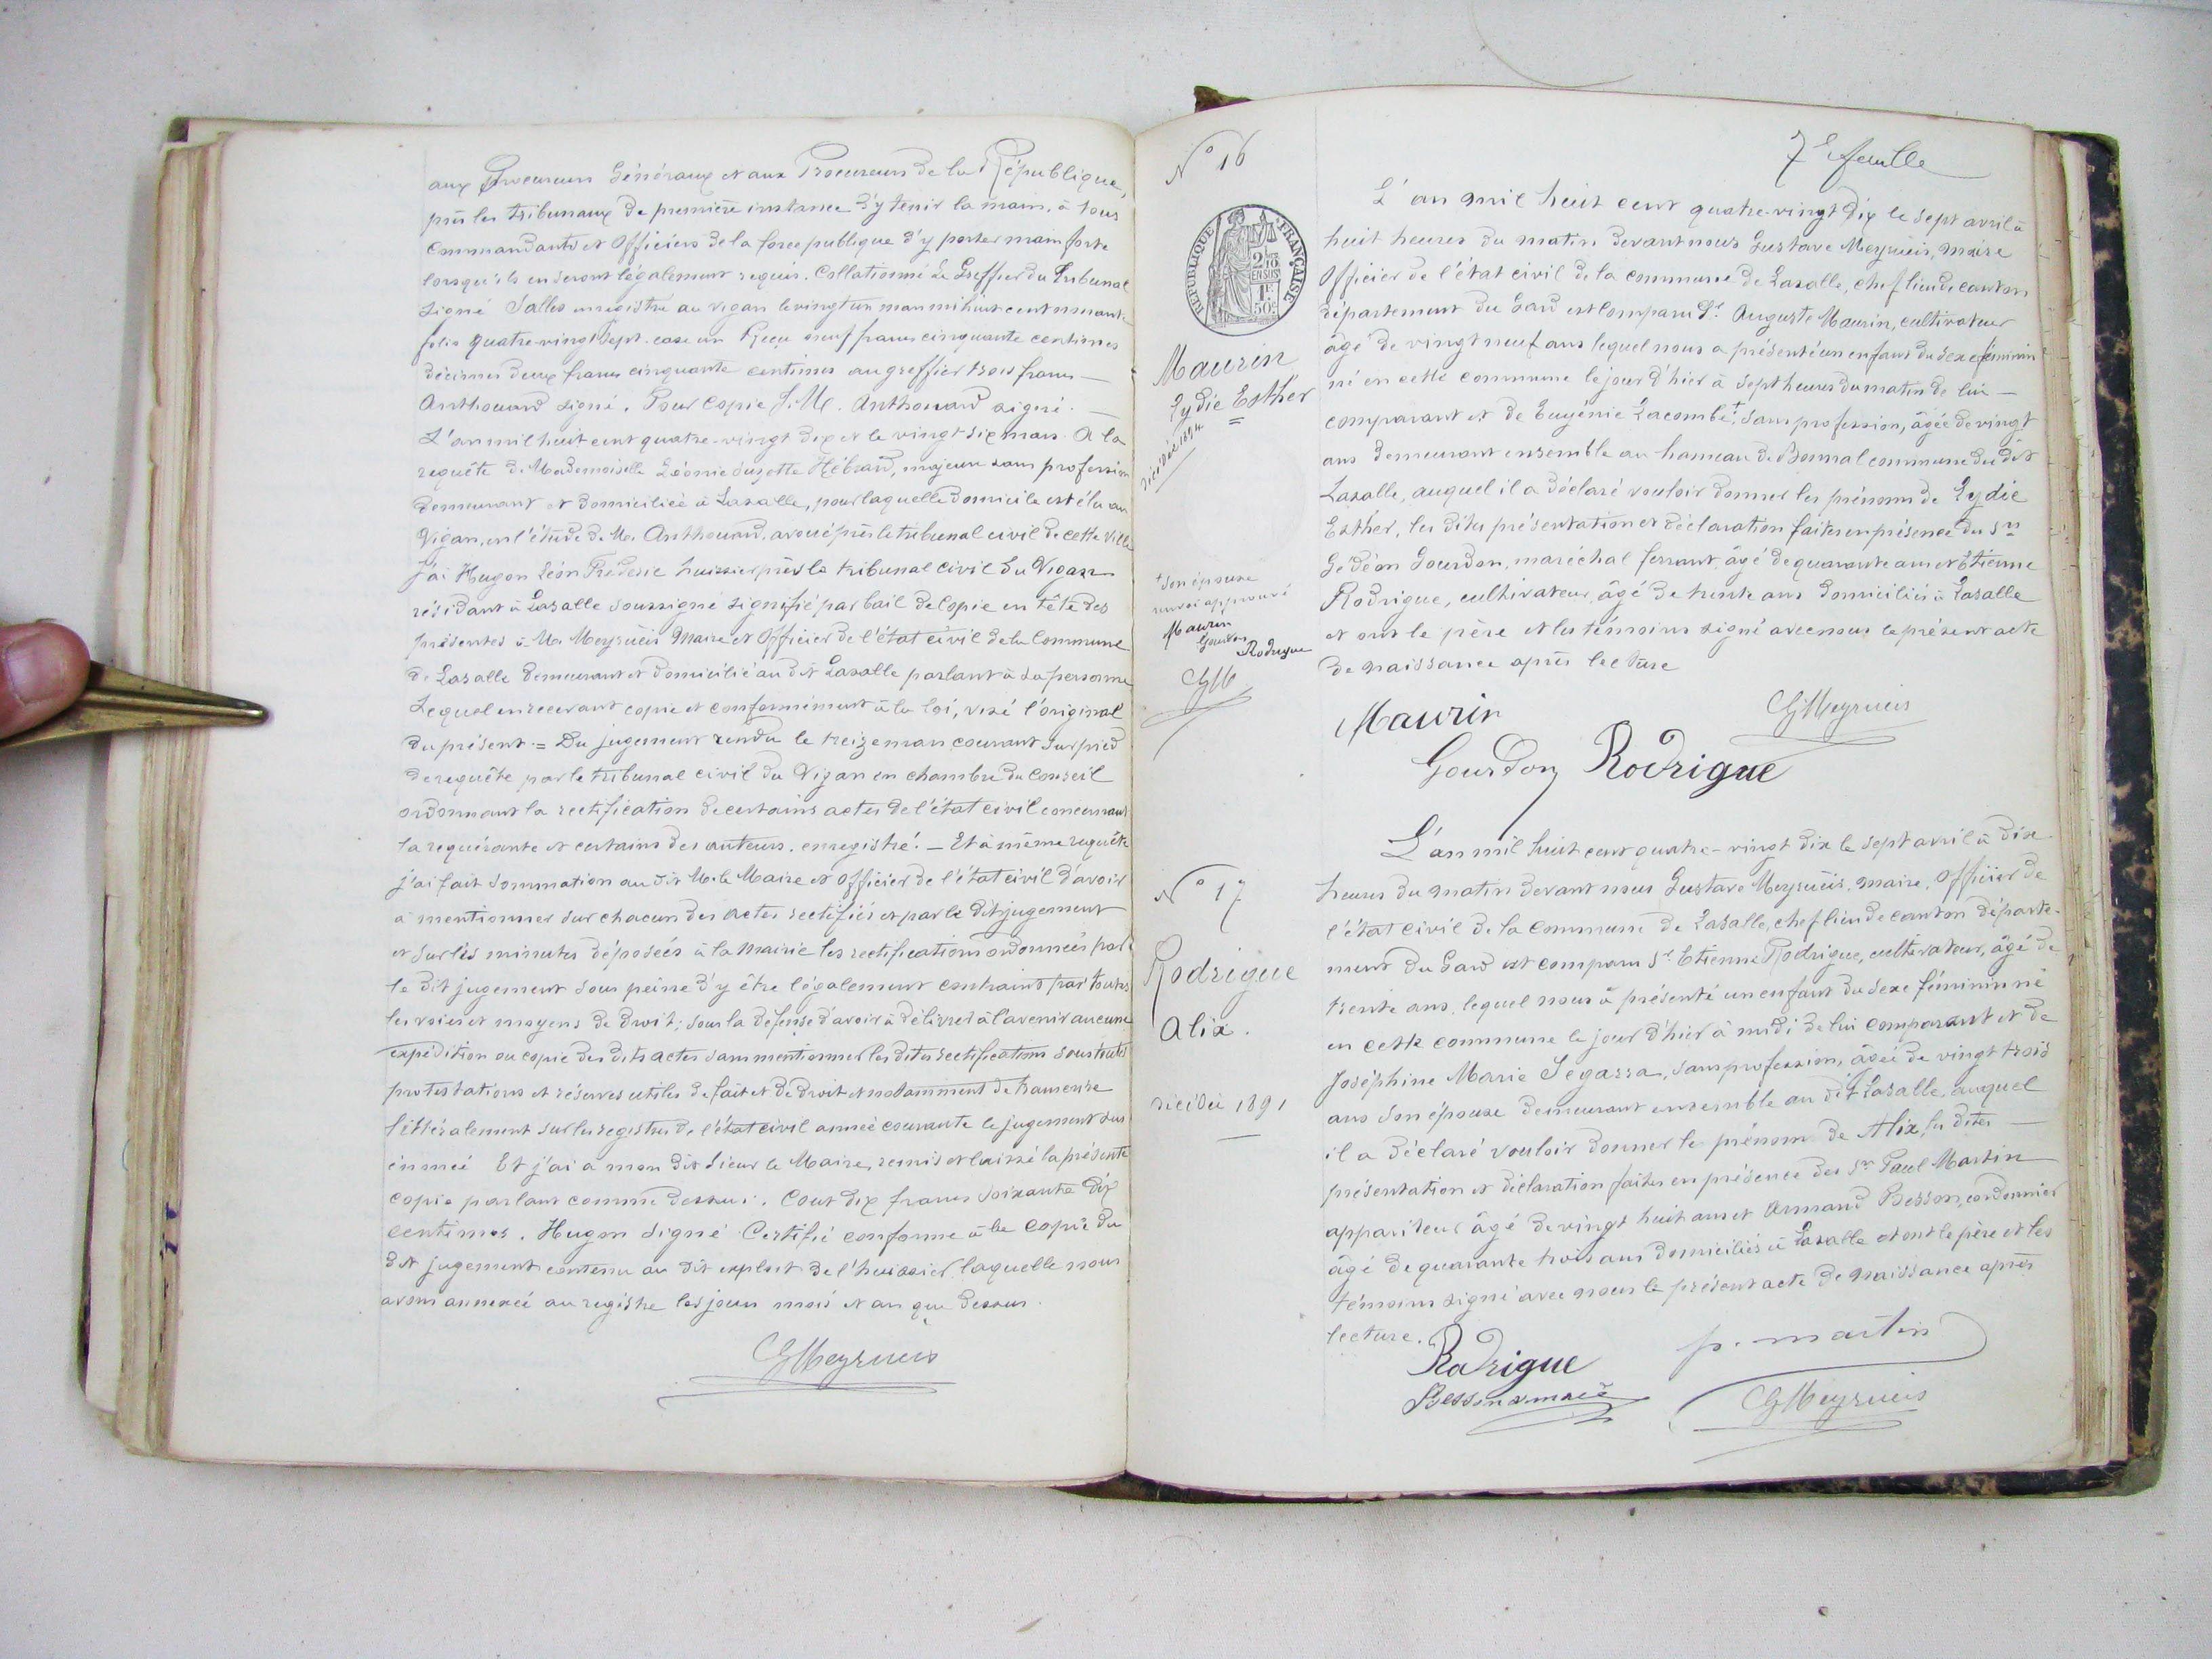 aux Procureurs Généraux et aux Procureurs de la République,
près les tribunaux de première instance d'y tenir la main, à tous
Commandants et Officiers de la force publique d'y porter main forte
lorsqu'ils en seront légalement requis. Collationné Le Greffier du Tribunal
signé Salles enregistré au Vigan le vingt un mars mil huit cent
folio quatre-vingt sept case un Reçu neuf francs cinquante centimes
décimes deux francs cinquante centimes au greffier trois francs —
Anthouard signé. Pour Copie Anthouard signé. —
L'an mil huit cent quatre-vingt dix et le vingt six mars. A la
requête de Mademoiselle Léonie Suzette Hébrard, majeure sans profession
demeurant et domiciliée à Lasalle, pour laquelle domicile est élu au
Vigan, en l'étude de Me Anthouard, avoué près le tribunal civil de cette ville
J'ai Hugon Léon Frédéric huissier près le tribunal civil du Vigan
résidant à Lasalle soussigné signifié par bail de copie en tête des
présentes à Mr Meyrueis Maire et Officier de l'état civil de la Commune
de Lasalle demeurant et domicilié au dit Lasalle parlant à sa personne
Lequel en recevant copie et conformément à la loi, visé l'original
du présent = Du jugement rendu le treize mars courant sur pied
de requête par le tribunal civil du Vigan en chambre du Conseil
ordonnant la rectification de certains actes de l'état civil concernant
la requérante et certains des auteurs. enregistré. — Et à même requête
j'ai fait sommation au dit Mr le Maire et Officier de l'état civil d'avoir
à mentionner sur chacun des actes rectifiés et par le dit jugement
et sur les minutes déposées à la Mairie les rectifications ordonnées par
le dit jugement sous peine d'y être légalement contraint par toutes
les voies et moyens de droit; sous la défense d'avoir à délivrer à l'avenir aucune
expédition ou copie des dits actes sans mentionner les dites rectifications sous toutes
protestations et réserves utiles de fait et de droit et notamment de transcrire
littéralement sur les registres de l'état civil année courante le jugement sus
énoncé Et j'ai à mon dit Sieur le Maire, remis et laissé la présente
copie parlant comme dessus. Cout dix francs soixante dix
centimes. Hugon signé Certifié conforme à la copie du
dit jugement contenu au dit exploit de l'huissier laquelle nous
avons annexée au registre les jour mois et an que dessus.
GMeyrueis
7e feuille
N° 16
REPUBLIQUE FRANÇAISE
2/10 EN SUS
1F
50c
Maurin
Lydie Esther
décédée 1894
† son épouse
renvoi approuvé
Maurin
Gourdon
Rodrigue
GM
L'an mil huit cent quatre-vingt dix le sept avril à
huit heures du matin devant nous Gustave Meyrueis, maire
Officier de l'état civil de la commune de Lasalle, chef lieu de canton
département du Gard est comparu Sr Auguste Maurin, cultivateur
âgé de vingt neuf ans lequel nous a présenté un enfant du sexe féminin
né en cette commune le jour d'hier à sept heures du matin de lui —
comparant et de Eugénie Lacombe† sans profession, âgée de vingt
ans demeurant ensemble au hameau de Bonnal commune du dit
Lasalle, auquel il a déclaré vouloir donner les prénoms de Lydie
Esther, les dites présentation et déclaration faites en présence du Srs
Gédéon Gourdon, maréchal ferrant, âgé de quarante ans et Etienne
Rodrigue, cultivateur, âgé de trente ans domiciliés à Lasalle
et ont le père et les témoins signé avec nous le présent acte
de naissance après lecture
Maurin
GMeyrueis
Gourdon Rodrigue
N° 17
Rodrigue
Alix.
décédée 1891
L'an mil huit cent quatre-vingt dix le sept avril à dix
heures du matin devant nous Gustave Meyrueis, maire, Officier de
l'état civil de la Commune de Lasalle, chef lieu de canton départe-
ment du Gard est comparu Sr Etienne Rodrigue, cultivateur, âgé de
trente ans, lequel nous a présenté un enfant du sexe féminin né
en cette commune le jour d'hier à midi de lui comparant et de
Joséphine Marie Ségarra, sans profession, âgée de vingt trois
ans son épouse demeurant ensemble au dit Lasalle, auquel
il a déclaré vouloir donner le prénom de Alix, les dites —
présentation et déclaration faites en présence des Srs Paul Martin
appariteur âgé de vingt huit ans et Armand Besson, cordonnier
âgé de quarante trois ans domiciliés à Lasalle et ont le père et les
témoins signé avec nous le présent acte de naissance après
lecture.
Rodrigue
p. martin
Besson
GMeyrueis